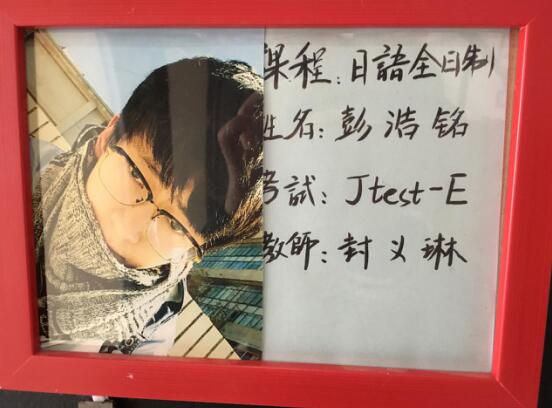 課程:日語全日制
姓名:彭浩铭
考試:Jtest-E
教師:封义琳